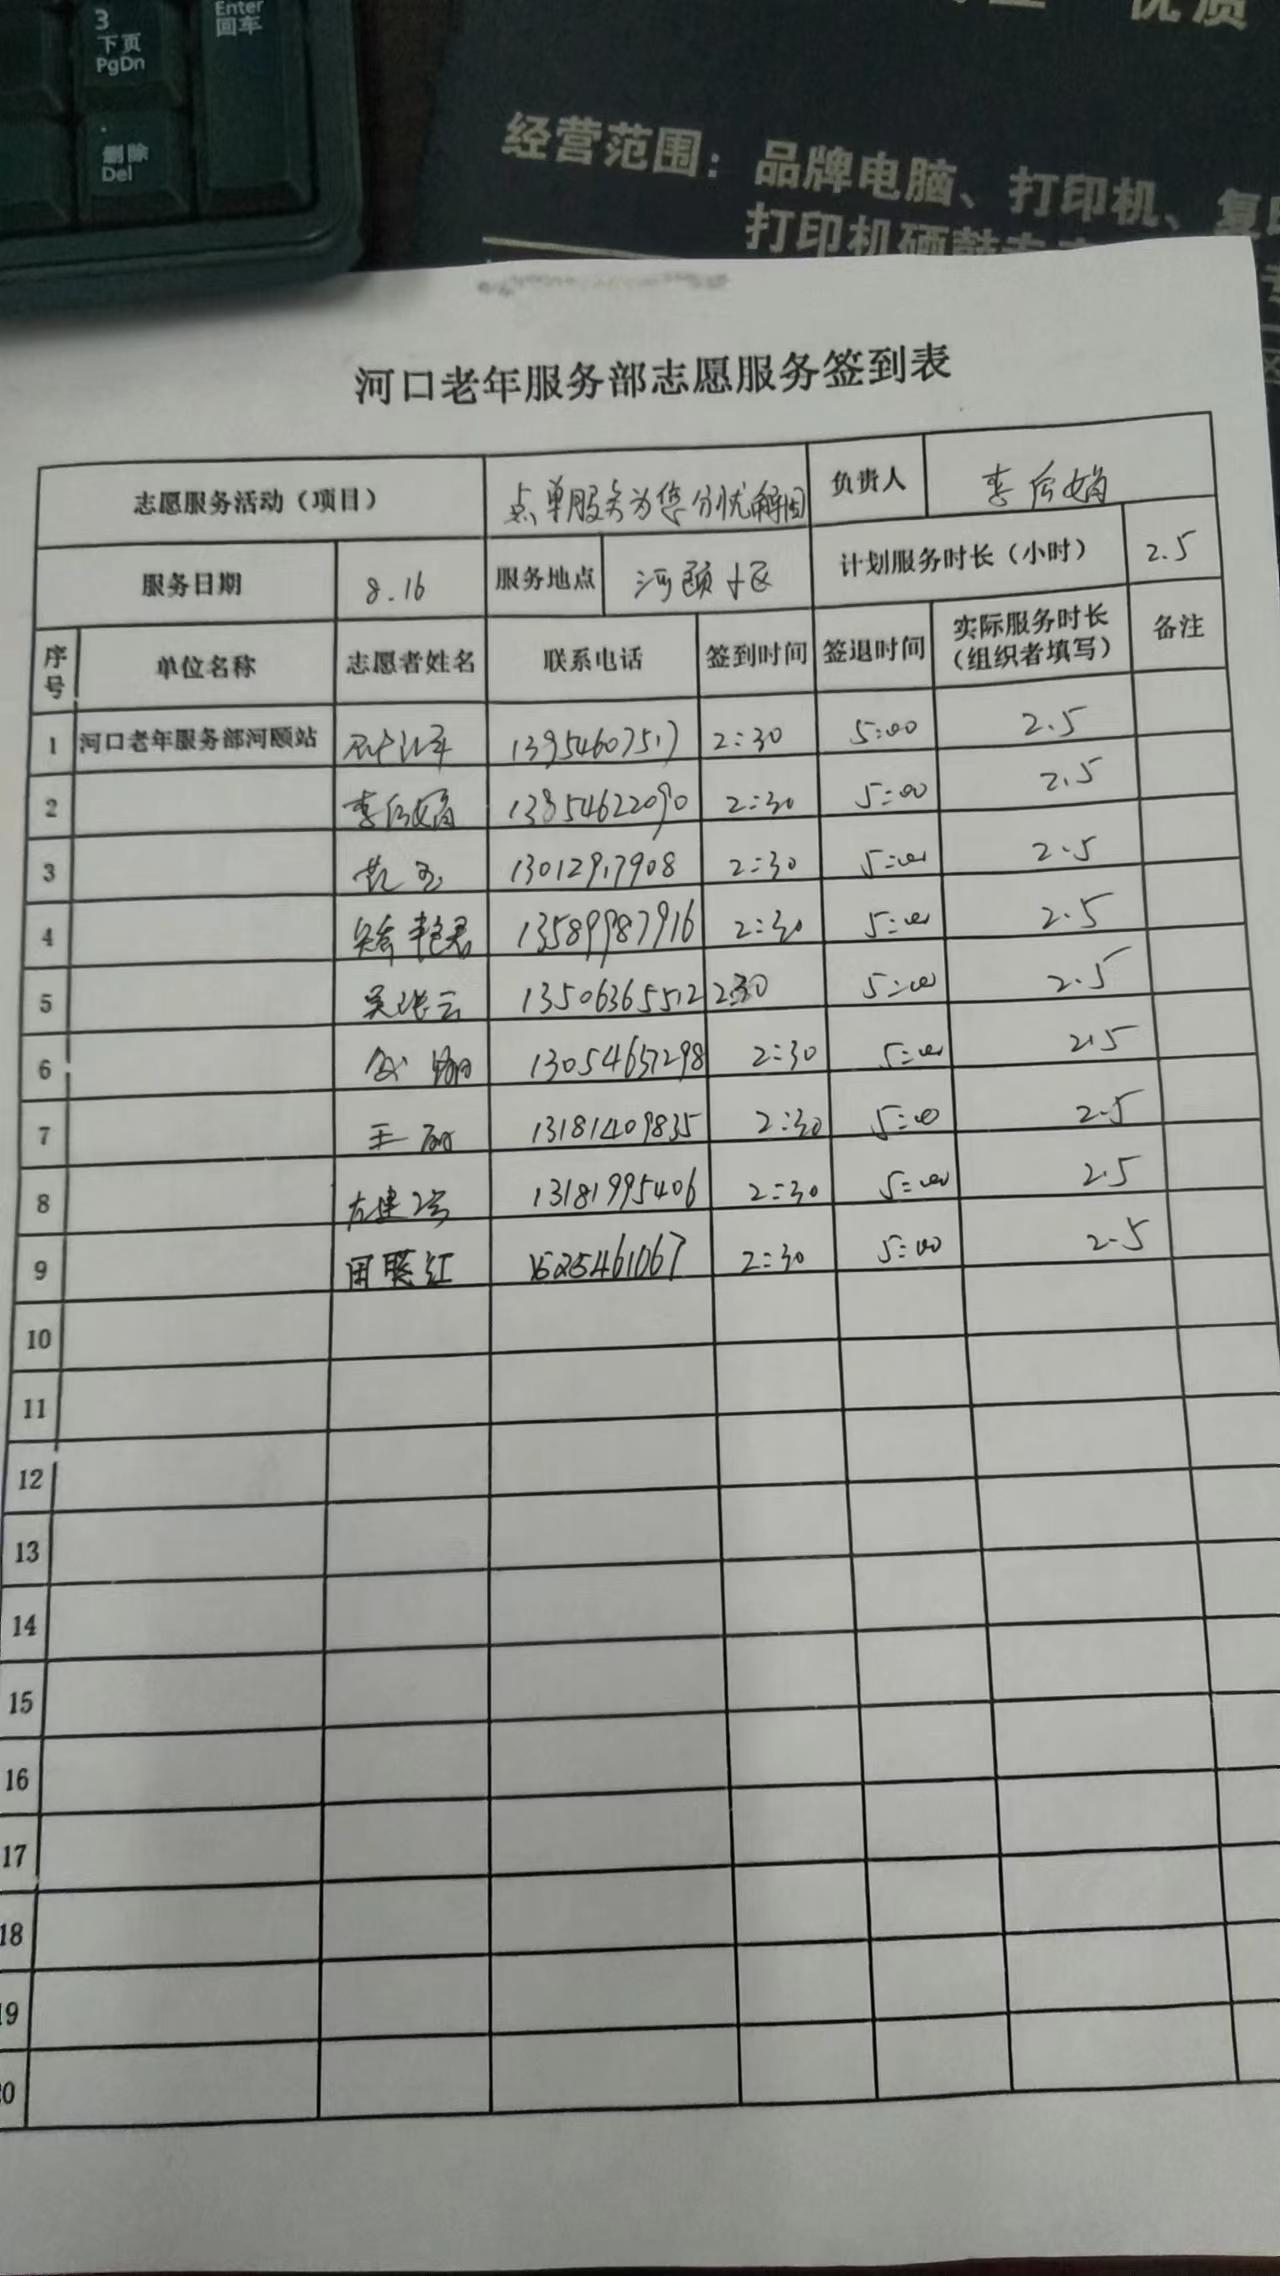 3
下页
PgDn
Enter
回车
删除
Del
优质
经营范围：品牌电脑、打印机、复印
打印机硒鼓
河口老年服务部志愿服务签到表
志愿服务活动（项目） 点单服务为您分忧解困 负责人 李后娟
服务日期 8.16 服务地点 河颐小区 计划服务时长（小时） 2.5
序号 单位名称 志愿者姓名 联系电话 签到时间 签退时间 实际服务时长（组织者填写） 备注
1 河口老年服务部河颐站 13954607517 2:30 5:00 2.5
2 李后娟 13854622090 2:30 5:00 2.5
3 13012917908 2:30 5:00 2.5
4 13589987916 2:30 5:00 2.5
5 13506365512 2:30 5:00 2.5
6 13054657298 2:30 5:00 2.5
7 王 13181409835 2:30 5:00 2.5
8 左建 13181995406 2:30 5:00 2.5
9 红 2:30 5:00 2.5
10
11
12
13
14
15
16
17
18
19
20